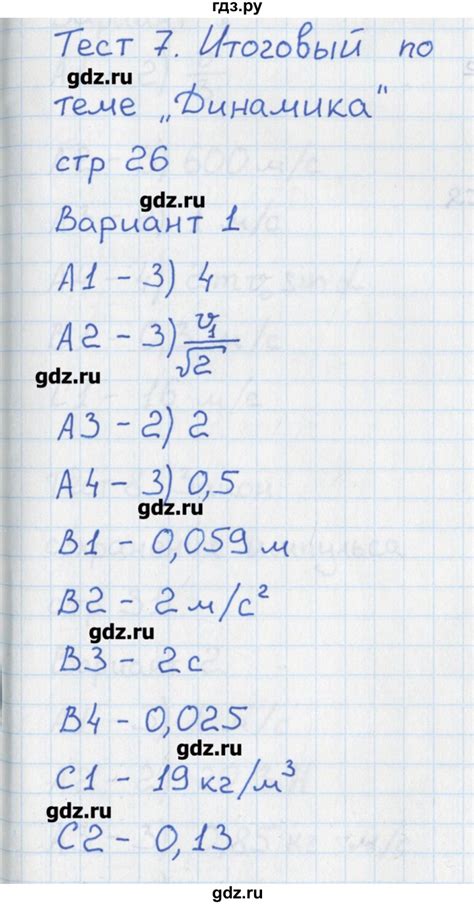 гдз.ру
Тест 7. Итоговый по
gdz.ru
теме „Динамика"
стр 26
gdz.ru
Вариант 1
A1 - 3) 4
A2 - 3) v₁/√2
gdz.ru
A3 - 2) 2
A4 - 3) 0,5
gdz.ru
B1 - 0,059 м
B2 - 2 м/с²
gdz.ru
B3 - 2 с
B4 - 0,025
gdz.ru
C1 - 19 кг/м³
gdz.ru
C2 - 0,13
gdz.ru